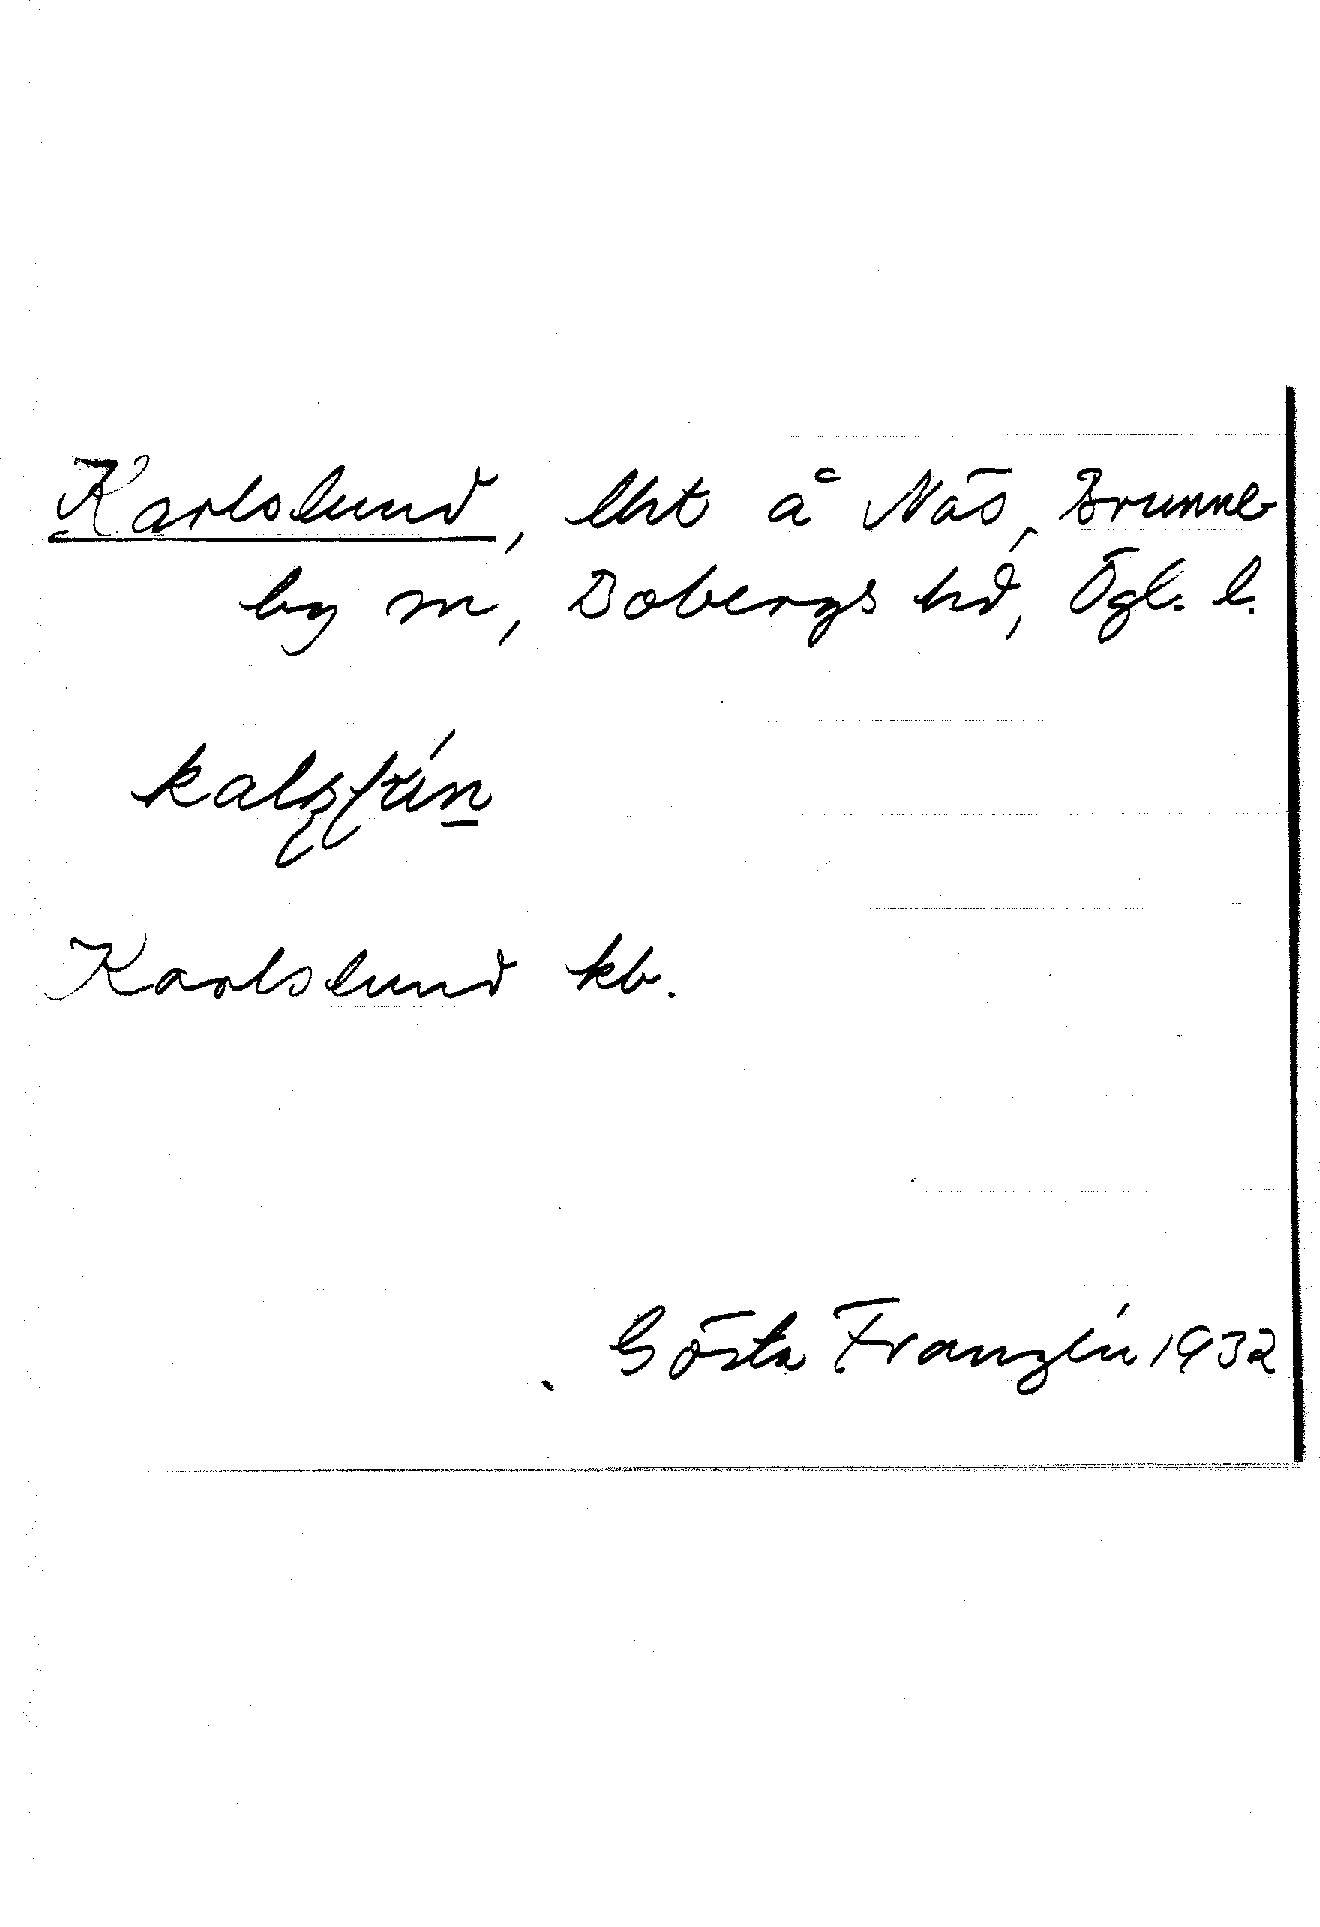 Karlslund, lht å Näs, Brunne-
by sn, Bobergs hd, Ögl. l.
Karlslund kb.
Gösta Franzén 1932